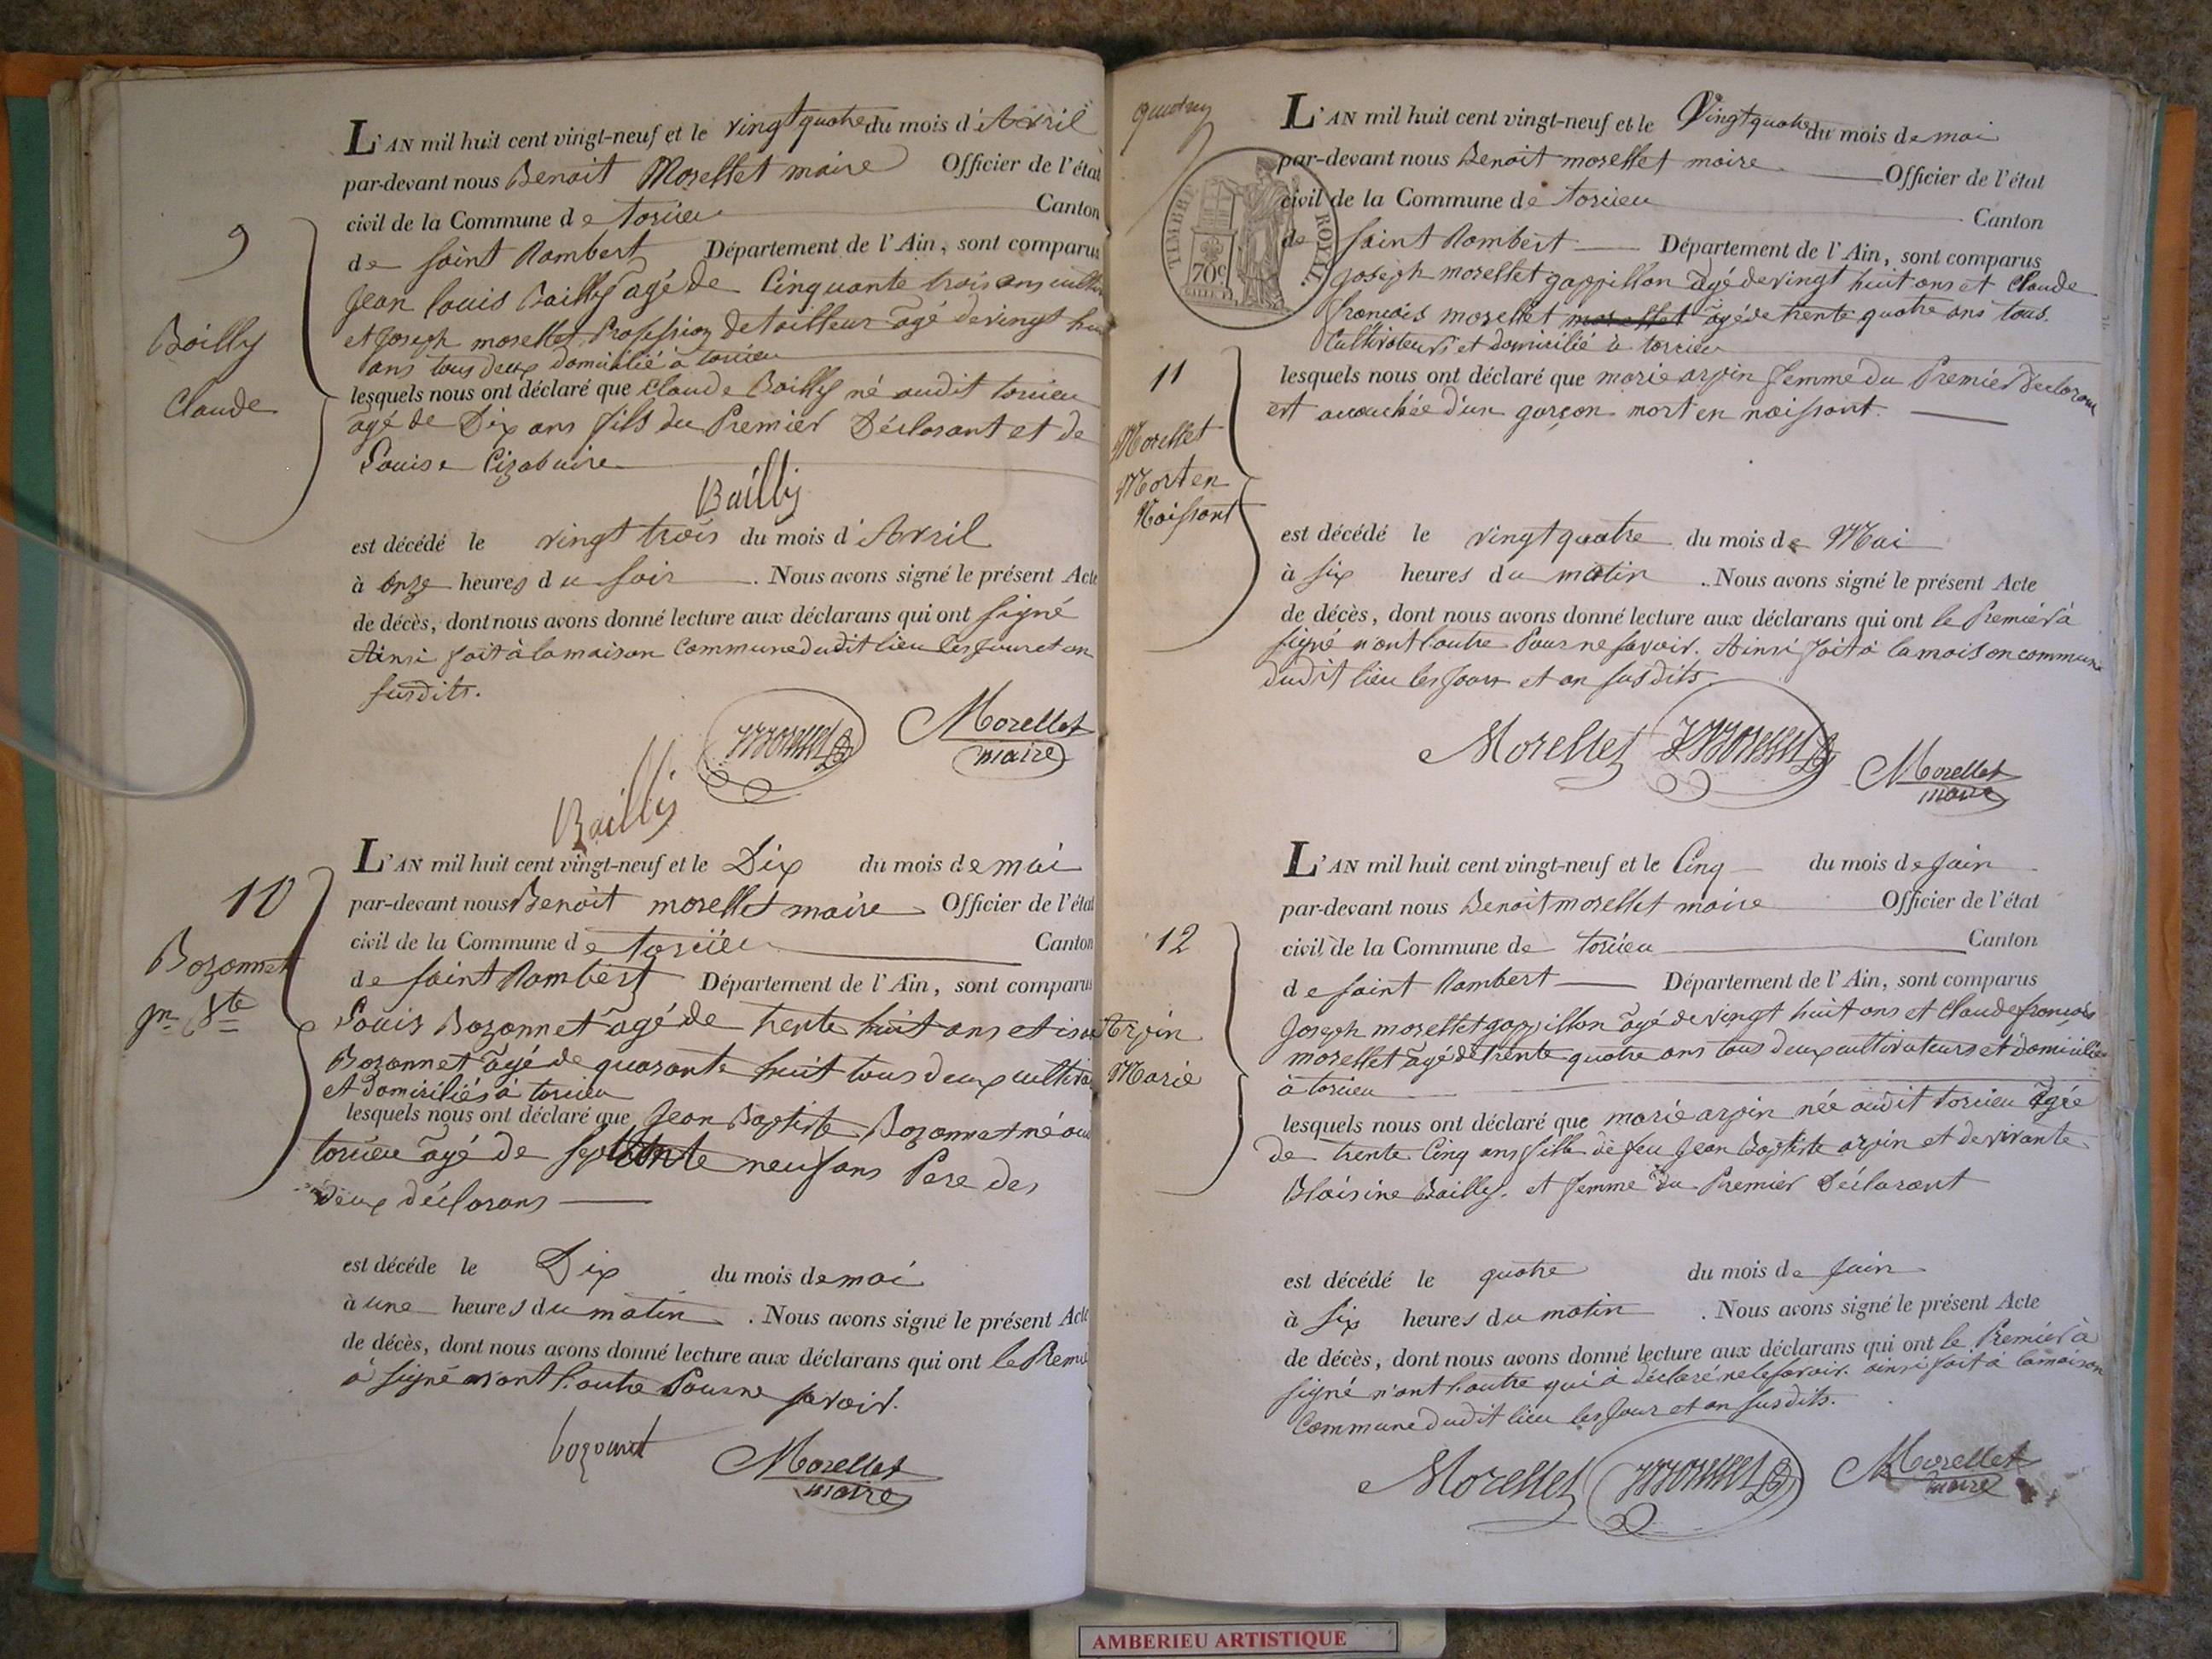 9
Bailly
Claude
L'AN mil huit cent vingt-neuf et le vingt quatre du mois d'Avril
par-devant nous Benoit Morellet maire Officier de l'état
civil de la Commune de torcieu Canton
de saint Rambert Département de l'Ain, sont comparus
Jean louis Bailly agé de Cinquante trois ans
et Joseph morellet Profession de tailleur agé de vingt
ans tous deux domicilié à torcieu
lesquels nous ont déclaré que Claude Bailly né audit torcieu
agé de Dix ans fils du Premier Déclarant et de
Louise
Bailly
est décédé le vingt trois du mois d'Avril
à onze heures du soir. Nous avons signé le présent Acte
de décès, dont nous avons donné lecture aux déclarans qui ont signé
Ainsi fait à la maison Commune dudit lieu les jour et an
susdits.
Morellet
maire
Bailly
10
Bozonnet
jn Bte
L'AN mil huit cent vingt-neuf et le Dix du mois de mai
par-devant nous Benoit morellet maire Officier de l'état
civil de la Commune de torcieu Canton
de saint Rambert Département de l'Ain, sont comparus
Louis Bozonnet agé de trente huit ans et
Bozonnet agé de quarante huit tous deux
et domiciliés à torcieu
lesquels nous ont déclaré que Jean Baptiste Bozonnet né
torcieu agé de septante neuf ans Pere des
deux déclarans
est décédé le Dix du mois de mai
à une heures du matin. Nous avons signé le présent Acte
de décès, dont nous avons donné lecture aux déclarans qui ont le
à signé l'autre Pour ne savoir.
bozonnet
Morellet
maire
TIMBRE ROYAL
70c
11
Morellet
Mort en
Naissant
L'AN mil huit cent vingt-neuf et le Vingt quatre du mois de mai
par-devant nous Benoit morellet maire Officier de l'état
civil de la Commune de torcieu Canton
de saint Rambert Département de l'Ain, sont comparus
Joseph morellet gappillon agé de vingt huit ans et Claude
françois morellet morellet agé de trente quatre ans tous
Cultivateurs et domicilié à torcieu
lesquels nous ont déclaré que marie arpin femme du Premier
est accouchée d'un garçon mort en naissant.
est décédé le vingt quatre du mois de Mai
à six heures du matin. Nous avons signé le présent Acte
de décès, dont nous avons donné lecture aux déclarans qui ont le Premier à
signé n'ont l'autre Pour ne savoir. Ainsi fait à la maison commune
dudit lieu les jours et an susdits.
Morellet
Morellet
maire
12
Arpin
Marie
L'AN mil huit cent vingt-neuf et le Cinq du mois de Juin
par-devant nous Benoit morellet maire Officier de l'état
civil de la Commune de torcieu Canton
de saint Rambert Département de l'Ain, sont comparus
Joseph morellet gappillon agé de vingt huit ans et Claude françois
morellet agé de trente quatre ans tous deux cultivateurs et domicilié
à torcieu
lesquels nous ont déclaré que marie arpin née audit torcieu agée
de trente Cinq ans fille de feu Jean Baptiste arpin et de vivante
Blaisine Bailly. et femme du Premier Déclarant
est décédé le quatre du mois de Juin
à six heures du matin. Nous avons signé le présent Acte
de décès, dont nous avons donné lecture aux déclarans qui ont le Premier à
signé n'ont l'autre qui à déclaré ne le savoir. ainsi fait à la maison
Commune dudit lieu les jour et an susdits.
Morellet
Morellet
maire
AMBERIEU ARTISTIQUE